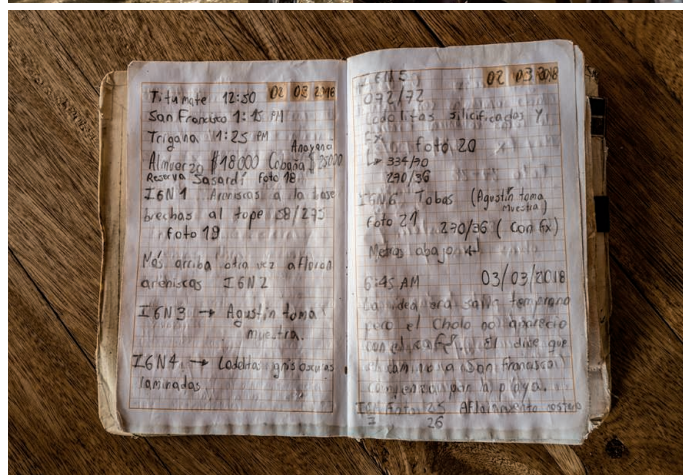 Titumate 12:30 02 03 2018
San Francisco 1:15 PM
Trigana 1:25 PM
Anayansi
Almuerzo $18000 Cabaña $25000
Reserva Sasardí foto 18
IGN1 Areniscas a la base
brechas al tope 58/275
foto 19
Más arriba otra vez afloran
areniscas IGN2
IGN3 → Agustín toma
muestra.
IGN4 → Lodolitas gris oscuras
laminadas.
IGN5 02 03 2018
072/72
Lodolitas silicificadas y
Fx foto 20
↳ 334/90
230/36
IGN6 Tobas (Agustín toma
muestra)
foto 21 230/36 (con Fx)
Metros abajo
6:45 AM 03/03/2018
La idea era salir temprano
pero el Cholo no apareció
con el café. El dice que
San Francisco
por la playa.
IGN Fotos 25 Afloramiento costero
7 26